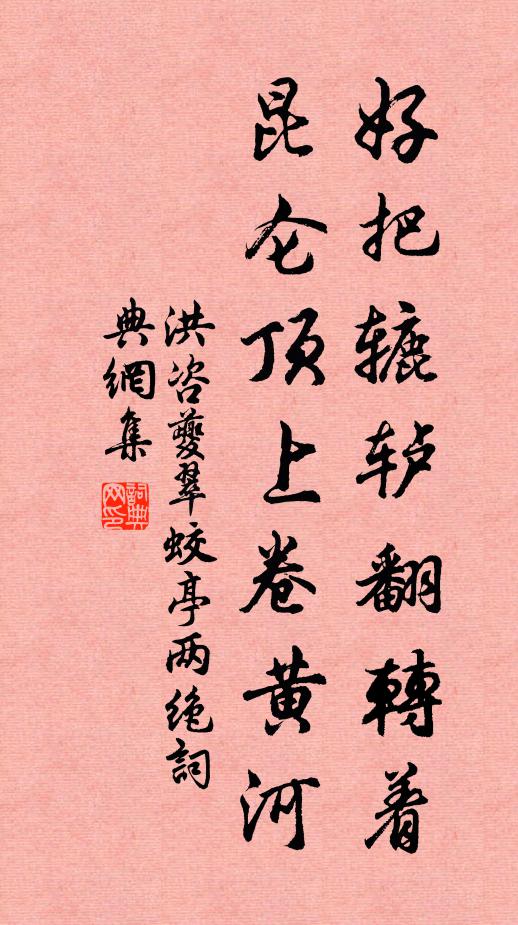 好把辘轳翻轉着
昆仑顶上卷黄河
洪咨夔翠蛟亭两绝詞
典網集
詞典
网印